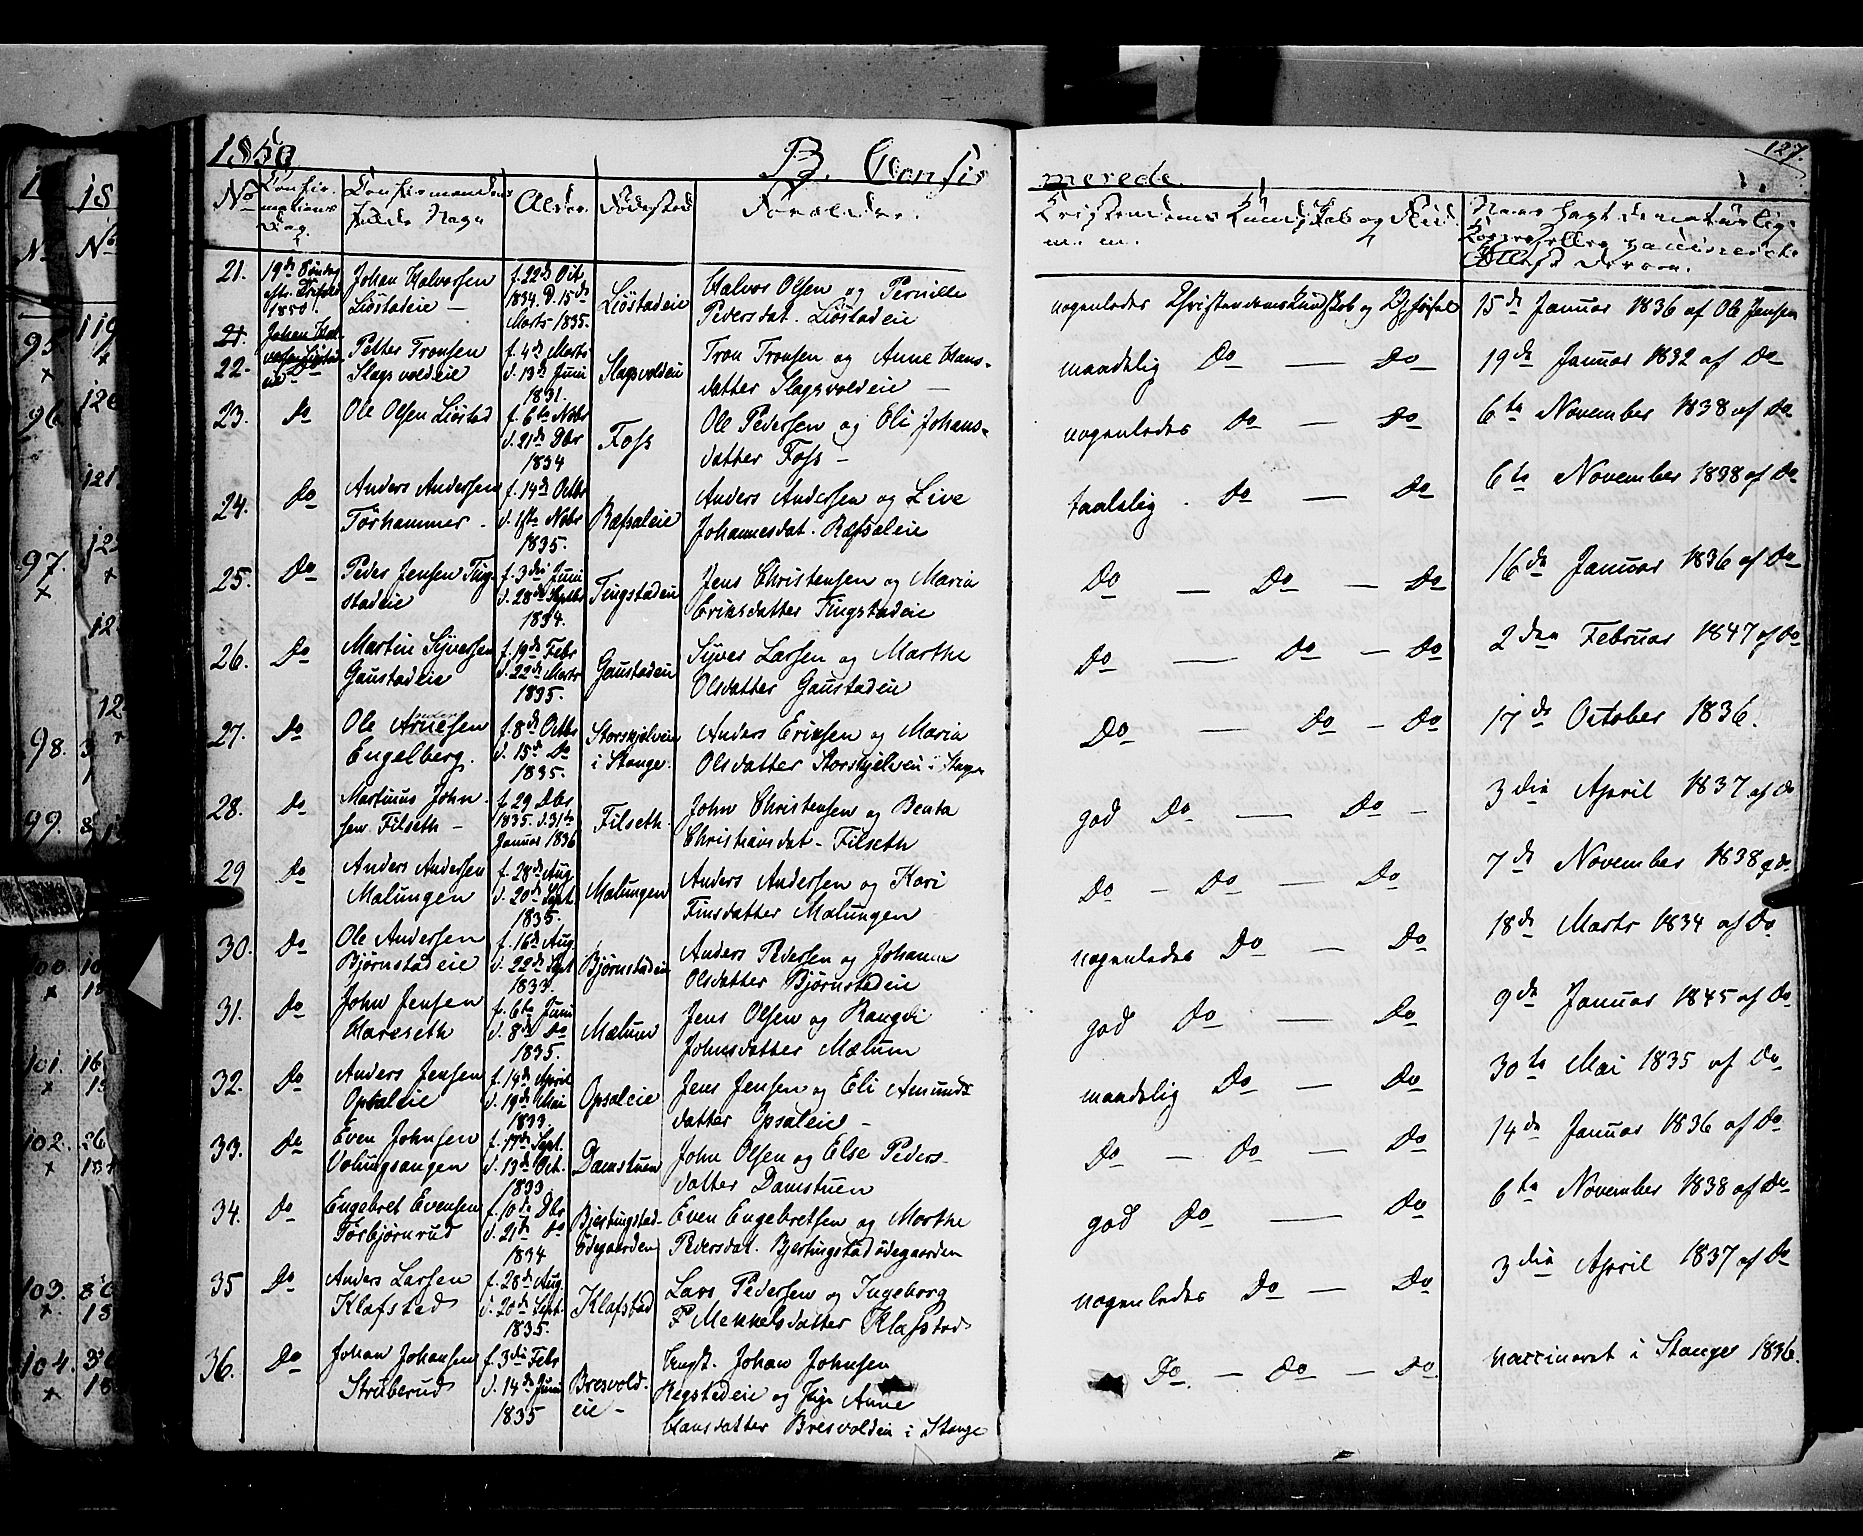 1850 B. Confir merede. 127.
No Confir- mations Dag. Confirmandens fulde Navn Alder. Fødested Forældre. Kristendoms Kundskab og Flid m. m. Naar havt de naturlige Kopper eller vaccinerede
21. 19de Søndag eftr. Trefold. 1850. Johan Halvorsen Liøstadeie – f. 22de Oct. 1834. d. 15de Marts 1835. Liøstadeie Halvor Olsen og Pernille Pedersdat. Liøstadeie nogenledes Christendomskundskab og 15de Januar 1836 af Ole Jensen
21. Johan Hal-
22. Do Petter Tronsen Slagsvoldeie f. 4de Marts d. 13de Juni 1831. Slagsvoldeie Tron Tronsen og Anne Hans- datter Slagsvoldeie – maadelig Do – Do 19de Januar 1832 af Do
23. Do Ole Olsen Liøstad f. 6te Nobr d. 21de Dbr 1834 Foss Ole Pedersen og Eli Johans- datter Foss – nogenledes Do – Do 6te November 1838 af Do
24. Do Anders Andersen Torhammer – f. 14de Octbr d. 1ste Nobr 1835. Ræfsaleie Anders Andersen og Live Johannesdat. Ræfsaleie taalelig. Do – Do 6te November 1838 af Do
25. Do Peder Jensen Ting- stadeie f. 3die Juni d. 28de Septbr 1834. Tingstadeie Jens Christensen og Maria Eriksdatter Tingstadeie Do – Do – Do 16de Januar 1836 af Do
26. Do Martin Syversen Gaustadeie f. 19de Febr d. 22de Marts 1835. Gaustadeie Syver Larsen og Marthe Olsdatter Gaustadeie Do – Do – Do 2den Februar 1847 af Do
27. Do Ole Engelberg. f. 8de Octbr d. 15de Do 1835. Storskjelven i Stange. Anders Eriksen og Maria Olsdatter Storskjelven i Stange Do – Do – Do 17de October 1836.
28. Do Martinus John- sen Filseth – f. 29 Dbr 1835. d. 31te Januar 1836 Filseth. John Christensen og Benta Christiansdat. Filseth god Do – Do – 3die April 1837 af Do
29 Do Anders Andersen Malungen f. 28de Aug d. 20de Sept. 1835. Malungen Anders Andersen og Kari Finsdatter Malungen Do – Do – Do 7de November 1838 af Do
30. Do Ole Andersen Bjørnstadeie f. 16de Aug d. 22de Sept 1833. Bjørnstadeie Anders Pedersen og Johanne Olsdatter Bjørnstadeie nogenledes Do – Do 18de Marts 1834 af Do
31. Do John Jensen Hareseth f. 6te Juni d. 8de Do 1835. Mælum Jens Olsen og Rangdi Johnsdatter Mælum god Do – Do 9de Januar 1845 af Do
32. Do Anders Jensen Opsaleie f. 14de April d. 19de Mai 1833. Opsaleie Jens Jensen og Eli Amunds datter Opsaleie – maadelig Do – Do 30te Mai 1835 af Do
33. Do Even Johnsen Volungsangen f. 17de Sept. d. 13de Oct. 1833. Damstuen John Olsen og Else Peders- datter Damstuen Do – Do – Do 14de Januar 1836 af Do
34. Do Engebret Evensen Torbjørnrud f. 10de Dbr d. 21de Do 1834 Bjertingstad- Ødegaarden Even Engebretsen og Marthe Pedersdat. Bjertingstadødegaarden god Do – Do 6te November 1838 af Do
35 Do Anders Larsen Klafstad f. 28de Aug d. 20de Sept. 1835. Klafstad Lars Pedersen og Ingeborg Mekkelsdatter Klafstad nogenledes Do – Do 3die April 1837 af Do
36. Do Johan Johansen Struberud f. 3die Febr d. 14de Juni 1835 Bresvold- eie – Ungk. Johan Johnsen Regstadeie og Pige Anne Hansdatter Bresvoldeie i Stange Do – Do – Do vaccineret i Stange 1836.
95 x
96
97. x
98.
99.
100. x
101. x
102. x
103. x
104. x
119 x
120
121